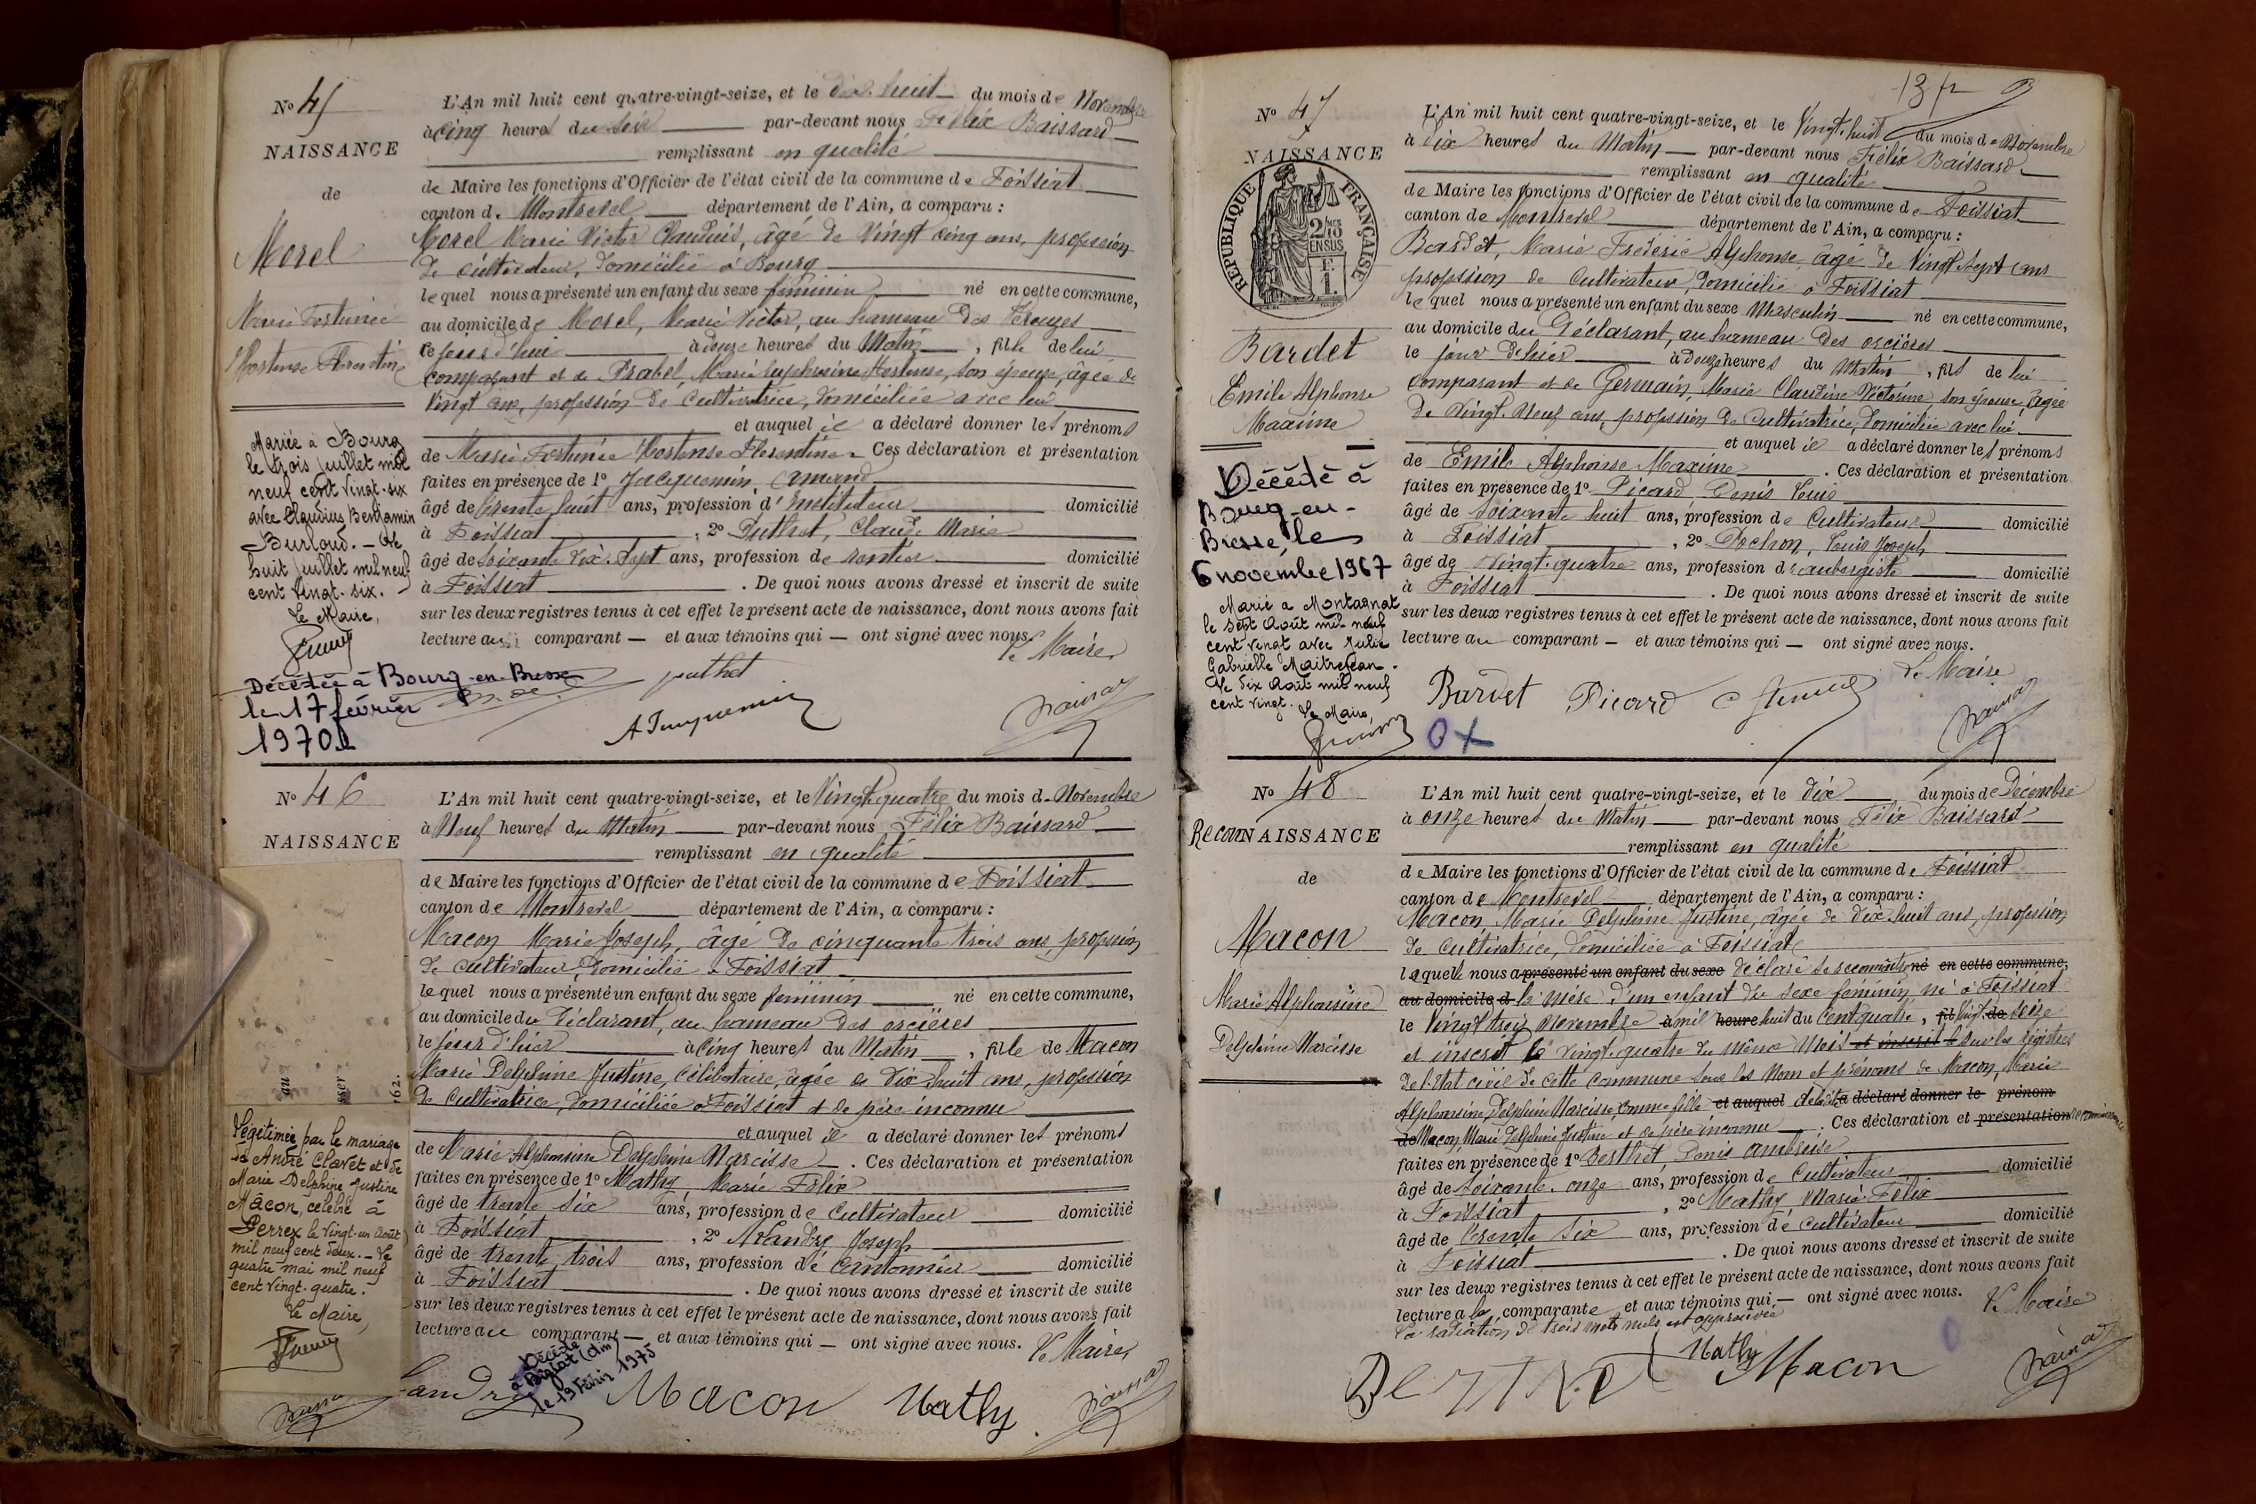 N° 45
NAISSANCE
de
Morel
Marie Fortunée
Hortense Florentine
Mariée à Bourg
le trois juillet mil
neuf cent vingt-six
avec Claudius Benjamin
Burloud. — Le
huit juillet mil neuf
cent vingt-six.
Le Maire,
Décédée à Bourg-en-Bresse
le 17 février
1970
L'An mil huit cent quatre-vingt-seize, et le dix-huit du mois de Novembre
à cinq heures du soir par-devant nous Félix Baissard
remplissant en qualité
de Maire les fonctions d'Officier de l'état civil de la commune de Foissiat
canton de Montrevel département de l'Ain, a comparu :
Morel Marie Victor Claudius, âgé de vingt cinq ans, profession
de cultivateur, domicilié à Bourg
lequel nous a présenté un enfant du sexe féminin né en cette commune,
au domicile de Morel, Marie Victor, au hameau des
le jour d'hui à onze heures du Matin, fille de lui
comparant et de Prabel, Marie Euphrosine Hortense, son épouse, âgée de
vingt ans, profession de cultivatrice, domiciliée avec lui
et auquel il a déclaré donner les prénoms
de Marie Fortunée Hortense Florentine. Ces déclaration et présentation
faites en présence de 1° Jacquemin, Amand
âgé de trente huit ans, profession d'instituteur domicilié
à Foissiat, 2° Puthet, Claude Marie
âgé de soixante dix-sept ans, profession de rentier domicilié
à Foissiat. De quoi nous avons dressé et inscrit de suite
sur les deux registres tenus à cet effet le présent acte de naissance, dont nous avons fait
lecture au comparant — et aux témoins qui — ont signé avec nous.
Le Maire,
puthet
A Jacquemin
N° 46
NAISSANCE
au
162.
Légitimée par le mariage
de André Clavet et de
Marie Delphine Justine
Mâcon, célébré à
Perrex le vingt-un août
mil neuf cent deux. — Le
quatre mai mil neuf
cent vingt-quatre.
Le Maire,
L'An mil huit cent quatre-vingt-seize, et le Vingt-quatre du mois de Novembre
à Neuf heures du Matin par-devant nous Félix Baissard
remplissant en qualité
de Maire les fonctions d'Officier de l'état civil de la commune de Foissiat
canton de Montrevel département de l'Ain, a comparu :
Macon Marie Joseph, âgé de cinquante trois ans, profession
de cultivateur, domicilié à Foissiat
lequel nous a présenté un enfant du sexe féminin né en cette commune,
au domicile du Déclarant, au hameau des orcières
le jour d'hier à cinq heures du Matin, fille de Macon
Marie Delphine Justine, célibataire, âgée de dix huit ans, profession
de cultivatrice, domiciliée à Foissiat et de père inconnu
et auquel il a déclaré donner les prénoms
de Marie Alphonsine Delphine Narcisse. Ces déclaration et présentation
faites en présence de 1° Mathy Marie Félix
âgé de trente six ans, profession de cultivateur domicilié
à Foissiat, 2° Joseph
âgé de trente trois ans, profession de cantonnier domicilié
à Foissiat. De quoi nous avons dressé et inscrit de suite
sur les deux registres tenus à cet effet le présent acte de naissance, dont nous avons fait
lecture au comparant — et aux témoins qui — ont signé avec nous.
Le Maire,
Décédée
à Bâgiat (Ain)
le 19 Février 1975
Macon Mathy
N° 47
NAISSANCE
RÉPUBLIQUE FRANÇAISE
2/10 EN SUS
Bardet
Emile Alphonse
Maxime
Décédé à
Bourg-en-
Bresse, le
6 novembre 1967
Marié à Montagnat
le sept août mil neuf
cent vingt avec Julie
Gabrielle Maitrejean.
Le dix août mil neuf
cent vingt.
Le Maire,
L'An mil huit cent quatre-vingt-seize, et le Vingt-huit du mois de Novembre
à dix heures du Matin par-devant nous Félix Baissard
remplissant en qualité
de Maire les fonctions d'Officier de l'état civil de la commune de Foissiat
canton de Montrevel département de l'Ain, a comparu :
Bardet, Marie Frédéric Alphonse, âgé de Vingt sept ans
profession de cultivateur, domicilié à Foissiat
lequel nous a présenté un enfant du sexe Masculin né en cette commune,
au domicile du Déclarant, au hameau des orcières
le jour d'hier à Douze heures du Matin, fils de lui
comparant et de Germain, Marie Claudine Victorine son épouse, âgée
de Vingt-Neuf ans, profession de cultivatrice, domiciliée avec lui
et auquel il a déclaré donner les prénoms
de Emile Alphonse Maxime. Ces déclaration et présentation
faites en présence de 1° Picard Denis Louis
âgé de soixante huit ans, profession de cultivateur domicilié
à Foissiat, 2° Louis Joseph
âgé de Vingt-quatre ans, profession d'aubergiste domicilié
à Foissiat. De quoi nous avons dressé et inscrit de suite
sur les deux registres tenus à cet effet le présent acte de naissance, dont nous avons fait
lecture au comparant — et aux témoins qui — ont signé avec nous.
Le Maire
Bardet Picard
N° 48
ReconNAISSANCE
de
Macon
Marie Alphonsine
Delphine Narcisse
L'An mil huit cent quatre-vingt-seize, et le dix du mois de Décembre
à onze heures du Matin par-devant nous Félix Baissard
remplissant en qualité
de Maire les fonctions d'Officier de l'état civil de la commune de Foissiat
canton de Montrevel département de l'Ain, a comparu :
Macon Marie Delphine Justine, âgée de dix-huit ans, profession
de cultivatrice, domiciliée à Foissiat
laquelle nous a présenté un enfant du sexe déclaré se reconnaître né en cette commune,
au domicile d la mère d'un enfant du sexe féminin né à Foissiat
le Vingt trois Novembre à mil heure huit du cent quatre, fil vingt de seize
et inscrit le vingt-quatre du même mois et inscrit le sur les registres
de l'état civil de cette commune sous les nom et prénoms de Macon, Marie
Alphonsine Delphine Narcisse comme fille et auquel de ladite a déclaré donner le prénom
de Macon Marie Delphine Justine et de père inconnu. Ces déclaration et présentation reconnaissance
faites en présence de 1° Berthet, Denis Ambroise
âgé de soixante-onze ans, profession de cultivateur domicilié
à Foissiat, 2° Mathy Marie-Félix
âgé de trente six ans, profession de cultivateur domicilié
à Foissiat. De quoi nous avons dressé et inscrit de suite
sur les deux registres tenus à cet effet le présent acte de naissance, dont nous avons fait
lecture à la comparante et aux témoins qui — ont signé avec nous.
La radiation de trois mots nuls est approuvée
Le Maire
Berthet Mathy Macon